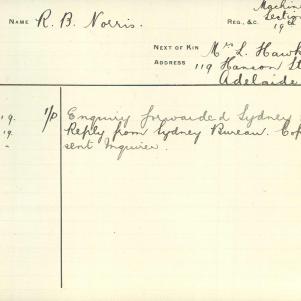 Machine
NAME R. B. Norris. REG., &C. Section
19th
NEXT OF KIN Mrs L. Hawk
ADDRESS 119 Hanson St
Adelaide
19. 1/D Enquiry forwarded Sydney
19. Reply from Sydney Bureau. Cop
" sent Inquirer.